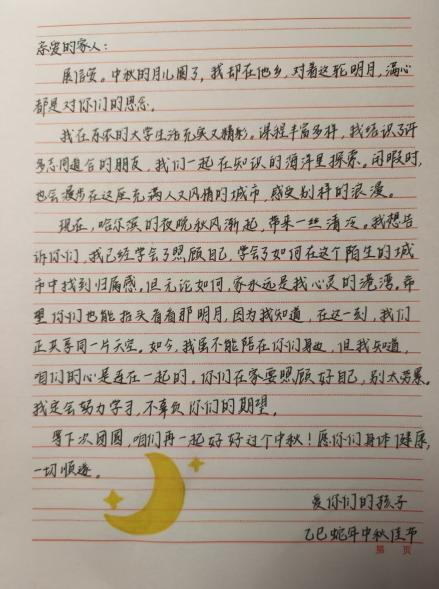 亲爱的家人：
展信安。中秋的月儿圆了，我却在他乡，对着这轮明月，满心
都是对你们的思念。
我在东农的大学生活充实又精彩。课程丰富多样，我结识了许
多志同道合的朋友，我们一起在知识的海洋里探索。闲暇时，
也会漫步在这座充满人文风情的城市，感受别样的浪漫。
现在，哈尔滨的夜晚秋风渐起，带来一丝清冷。我想告
诉你们，我已经学会了照顾自己，学会了如何在这个陌生的城
市中找到归属感。但无论如何，家永远是我心灵的港湾。希
望你们也能抬头看看那明月，因为我知道，在这一刻，我们
正共享同一片天空。如今，我虽不能陪在你们身边，但我知道，
咱们的心是连在一起的。你们在家要照顾好自己，别太劳累。
我定会努力学习，不辜负你们的期望。
等下次团圆，咱们再一起好好过个中秋！愿你们身体健康，
一切顺遂。
爱你们的孩子
乙巳蛇年中秋佳节
第 页